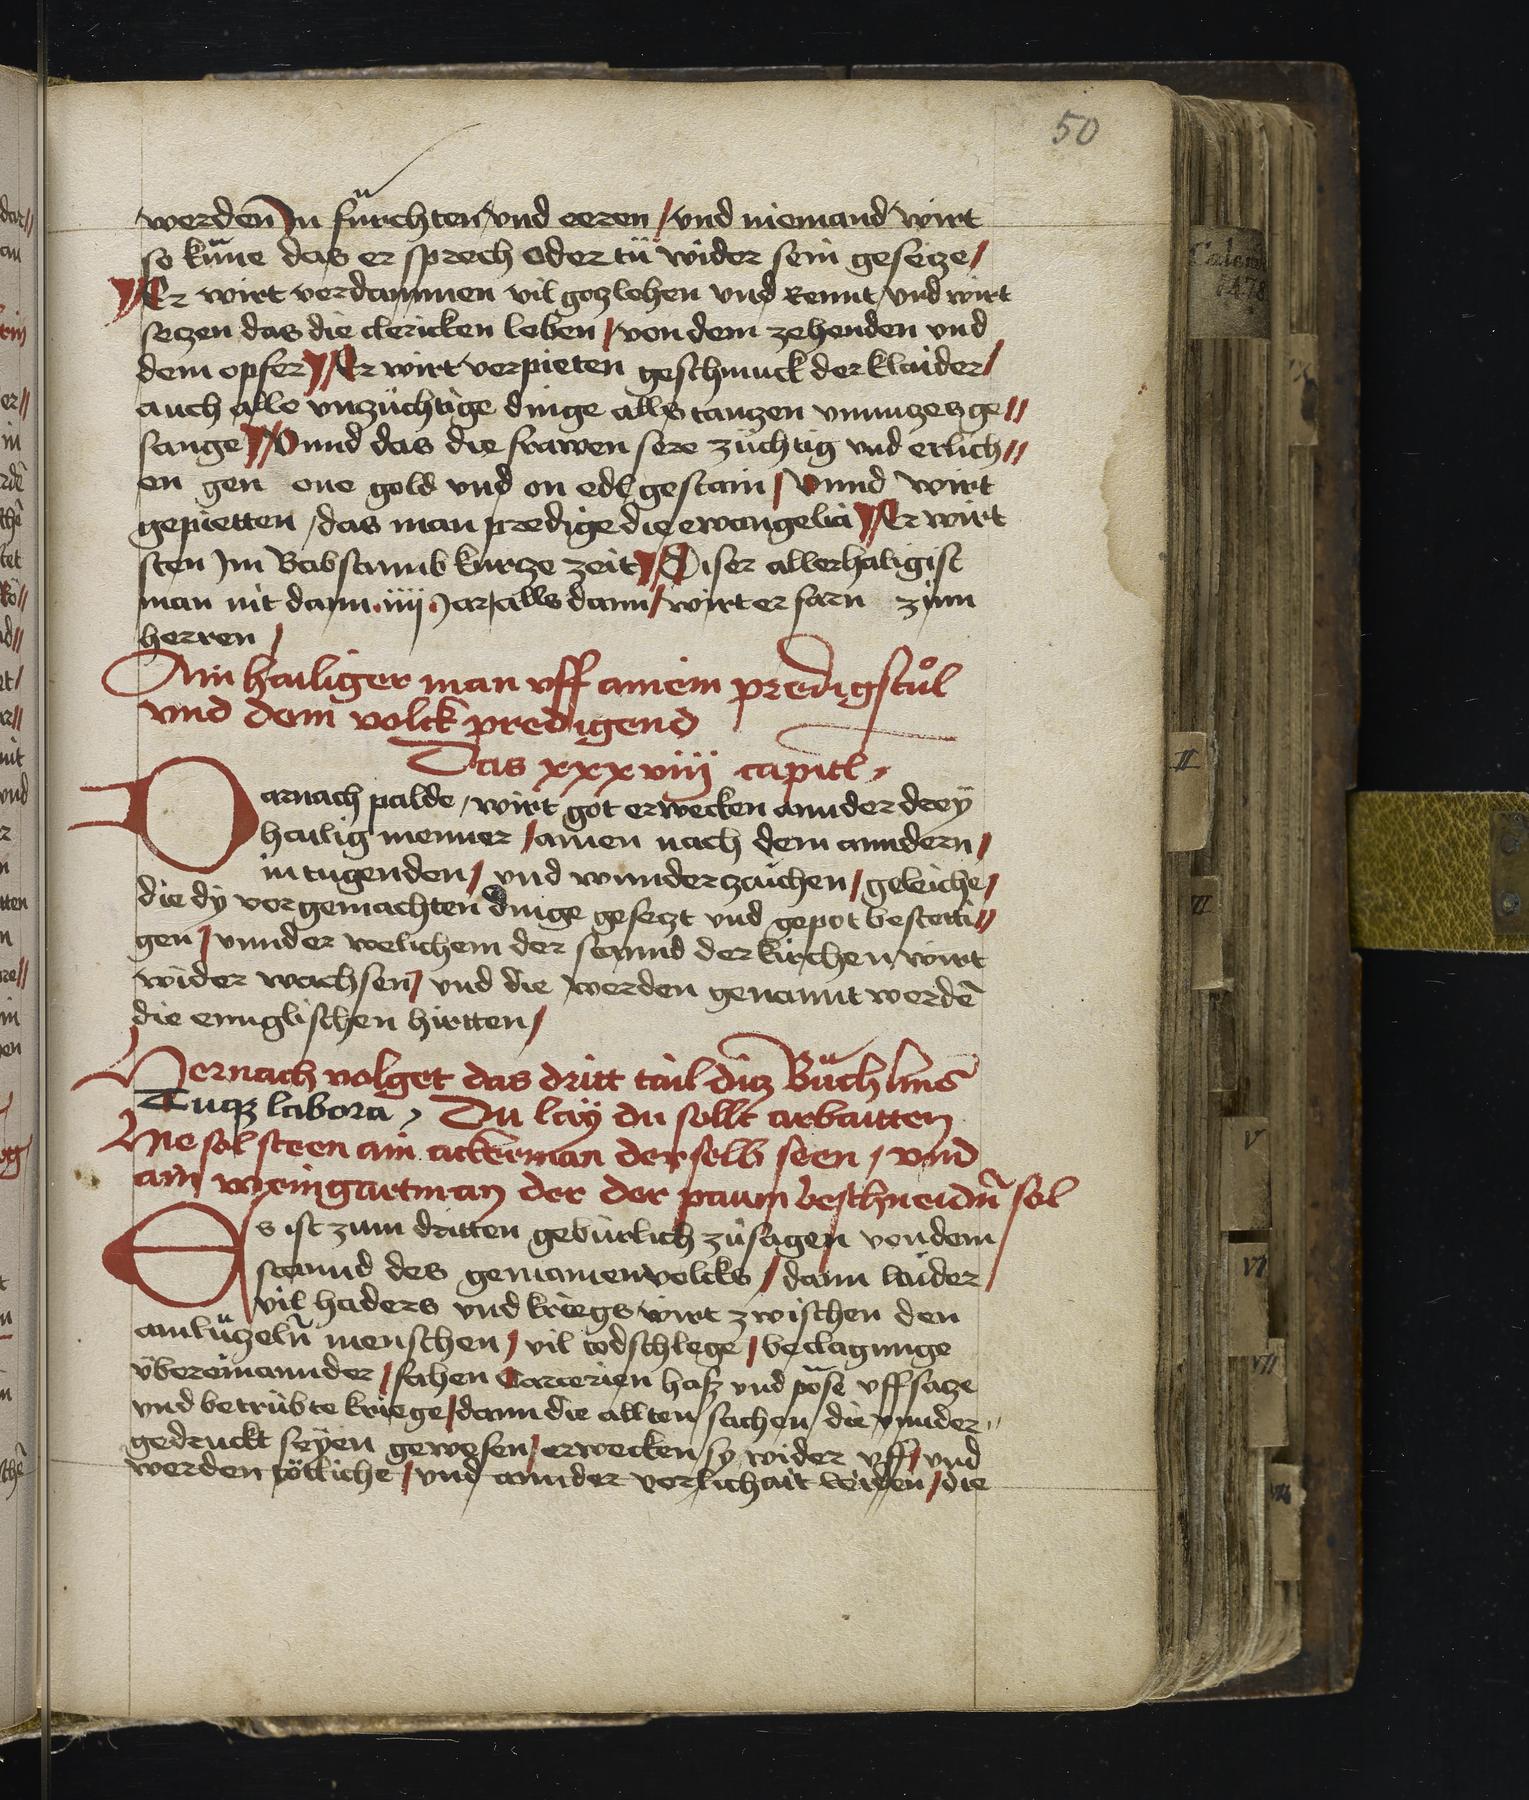 50
werden Jn fürchten vnd eeren / vnd niemand wirt
so küne das er sprech oder tü wider sein gesetze /
Er wirt verdammen vil gozlehen vnd Rennt / vnd wirt
setzen das die clericken leben / von dem zehenden vnd
dem opfer // Er wirt verpieten geschmuck der klaider /
auch alle vnzüchtige dinge alls tantzen vnnutzes ge//
sange // Vnnd das die frawen sere züchtig vnd erlich//
en gen one gold vnd on edl gestain / Vnnd wirt
gepietten / das man predige die ewangelia // Er wirt
sten Jm Babstumb kurtze zeit // Diser allerhailigist
man nit dann .iiij. Jar / alls dann / wirt er farn zum
herren /
Ain hailiger man vff ainem predigstůl
vnd dem volck predigend
Das xxxviiij capitl
Darnach palde / wirt got erwecken annder dreÿ
hailig menner / ainen nach dem anndern /
in tugenden / vnd wunderzaichen / geleiche /
die dy vorgemachten dinge gesetzt vnd gepot bestetti//
gen / vnnder welichem der stannd der kirchen wirt
wider wachsen / vnd die werden genannt werdē
die ennglischen hirtten /
Hernach volget das dritt tail ditz Büchlins
Tuqz labora , Du laÿ du sollt arbaitten
Hie sol steen ain ackerman derselb seen / vnd
ain weingartman der der paum beschneidn̄ sol
Es ist zum dritten gebürlich zůsagen von dem
stannd des gemainen volcks / dann laider
vil haders vnd kriegs wirt zwischen den
ainlützeln̄ menschen / vil todschlege / beclagunge
übereinannder / fahen Carcerien haß vnd pöse vffsatze
vnd betrübte kriege / dann die allten sachen / die vnnder
gedruckt seÿen gewesen / erwecken sy wider vff / vnd
werden tötliche / vnd annder verlichait werden / die
II
V
VI
VII